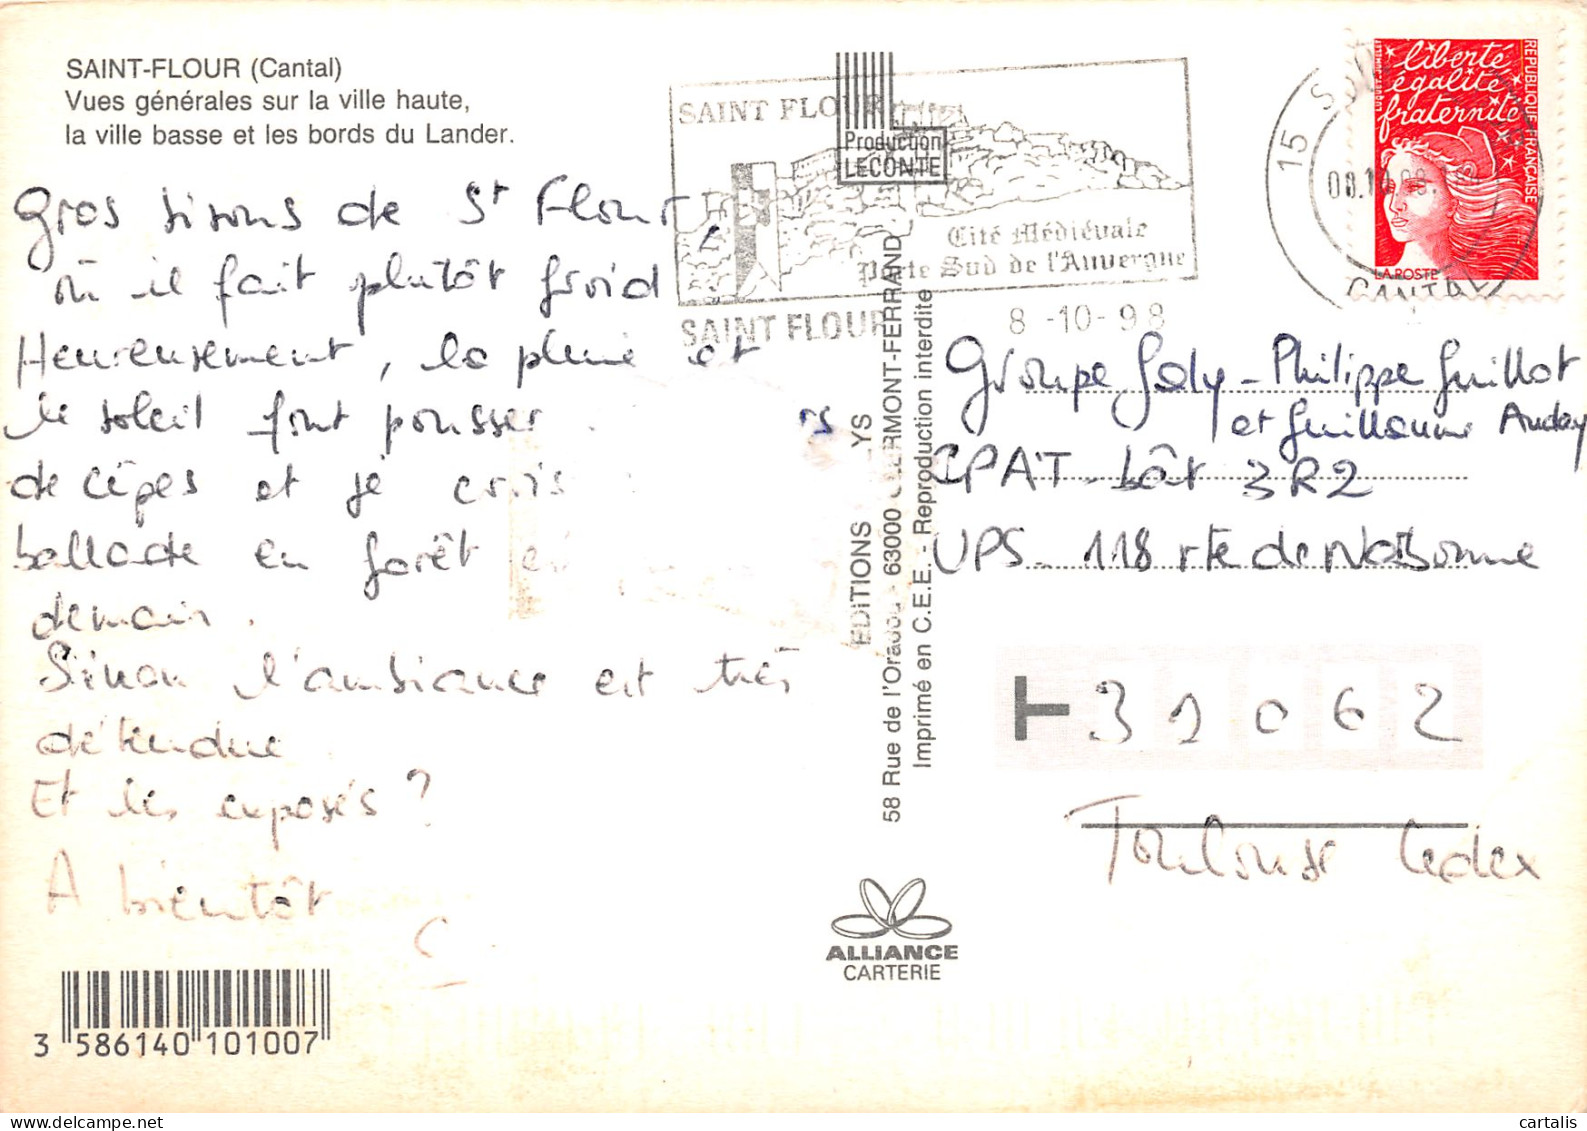 SAINT-FLOUR (Cantal)
Vues générales sur la ville haute,
la ville basse et les bords du Lander.
Gros bisous de St Flour,
où il fait plutôt froid
Heureusement, la pluie et
le soleil font pousser
de cêpes et je crois
ballade en forêt
demain.
Sinon l'ambiance est très
détendue
Et les exposés ?
A bientôt
C
3 586140 101007
SAINT FLOUR
Cité Médiévale
Porte Sud de l'Auvergne
SAINT FLOUR
8-10-98
Production
LECONTE
EDITIONS YS
58 Rue de l'Oradou - 63000 CLERMONT-FERRAND
Imprimé en C.E.E. - Reproduction interdite
ALLIANCE
CARTERIE
15
CANTAL
liberté
égalité
fraternité
REPUBLIQUE FRANÇAISE
LA POSTE
Groupe Goly - Philippe Guillot
et Guillaume
CPAT - bât 3R2
UPS - 118 rte de Narbonne
31062
Toulouse Cedex
cartalis